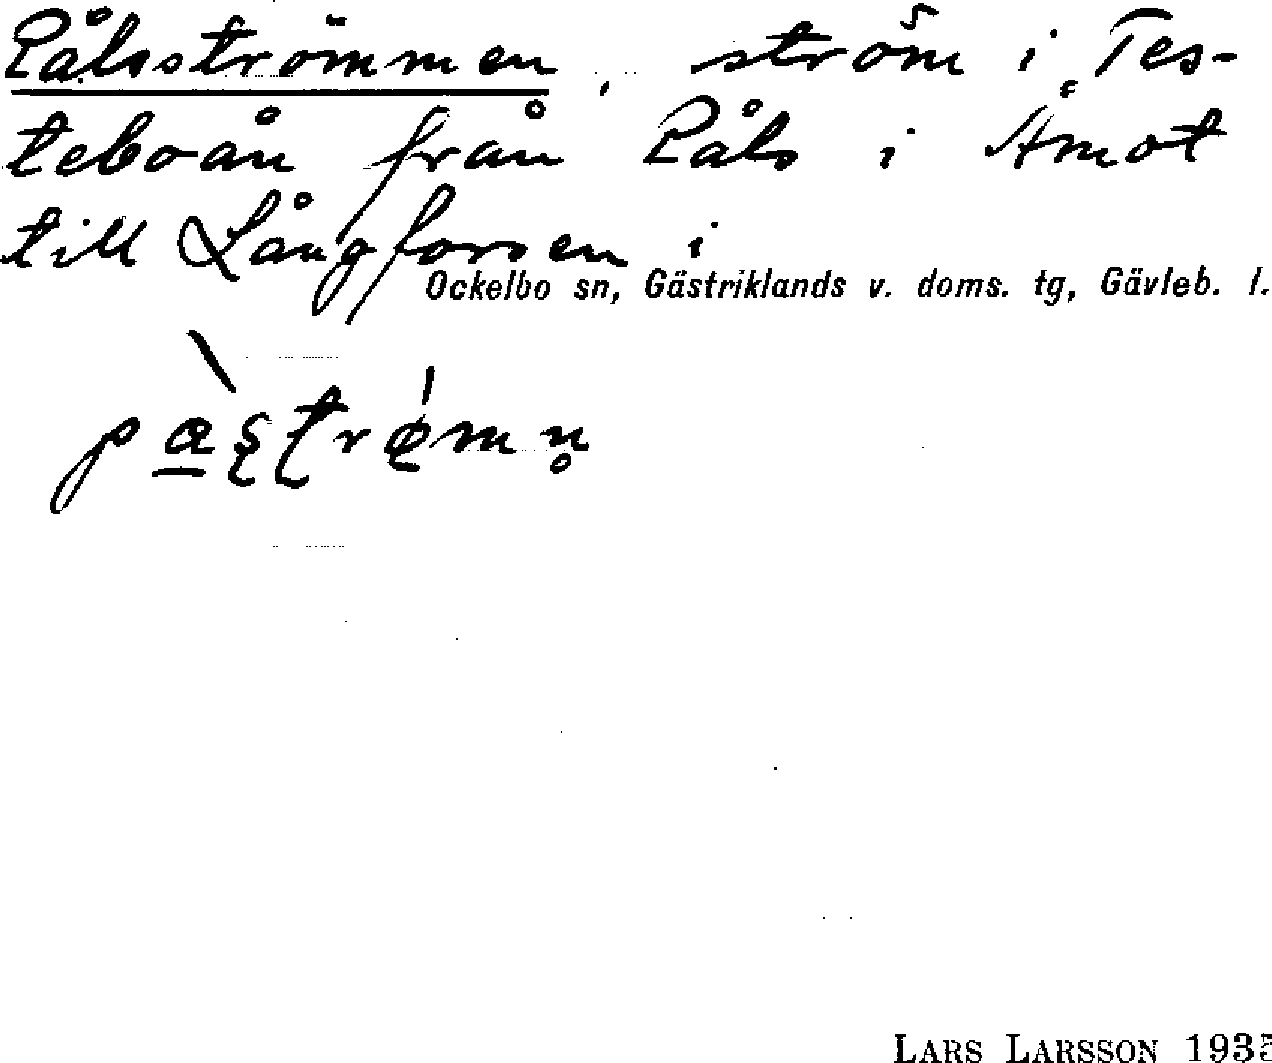 Pålsströmmen, ström i Tes-
teboån från Påls i Åmot
till Långforsen i
Ockelbo sn, Gästriklands v. doms. tg, Gävleb. l.
LARS LARSSON 1935